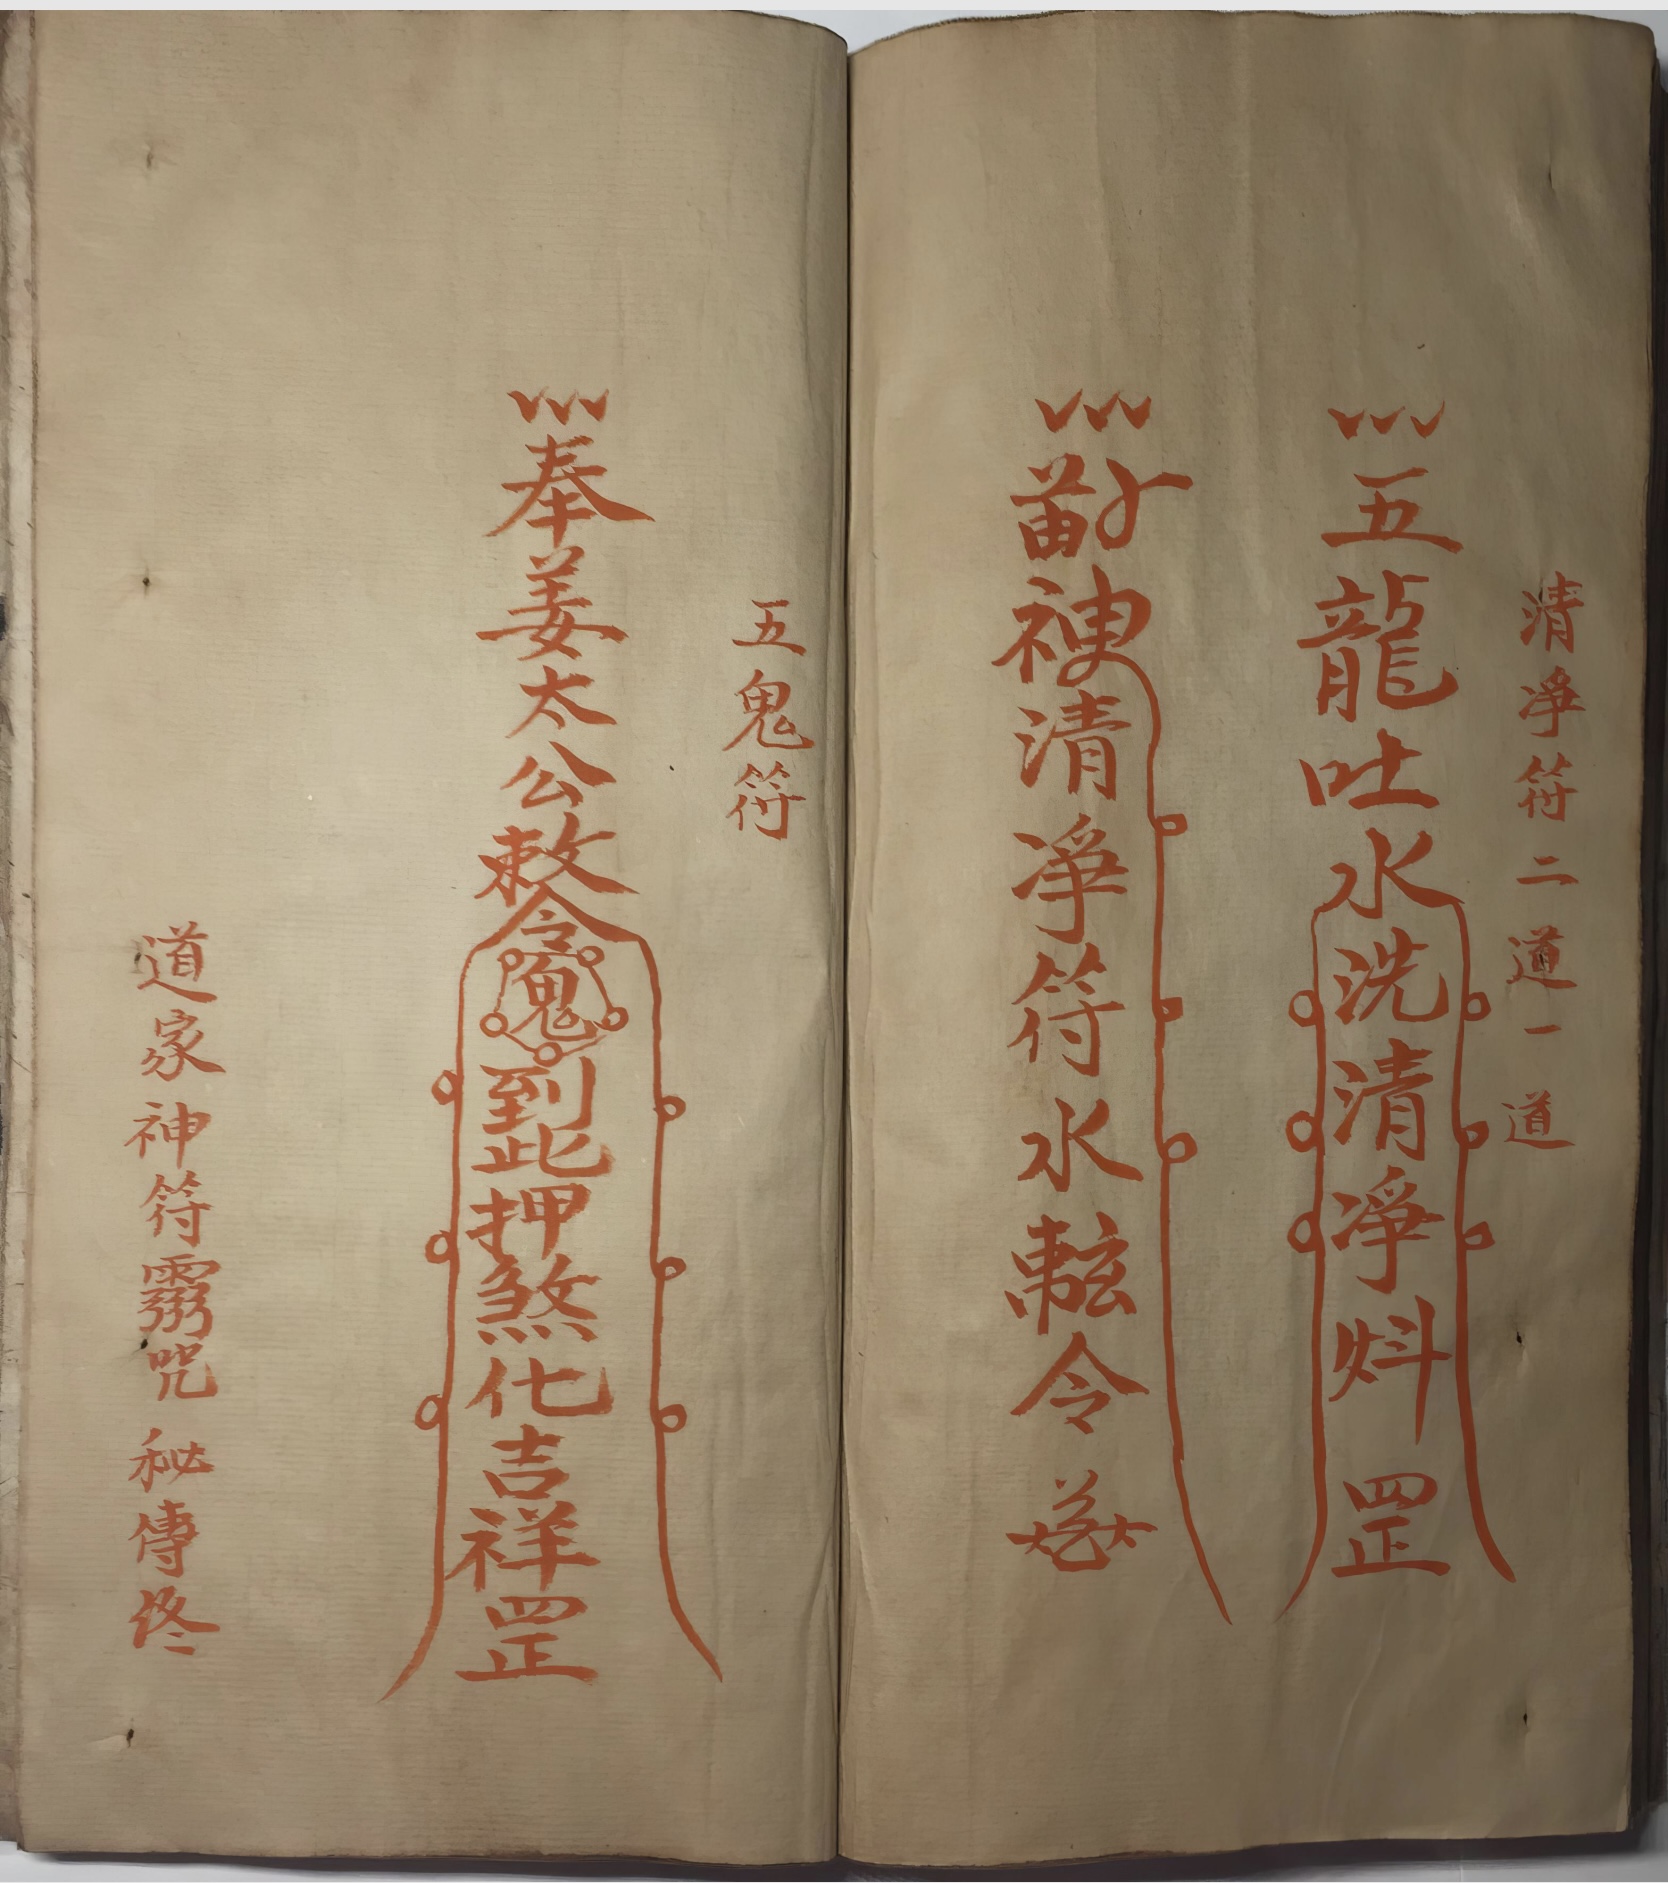 清淨符二道一道
五龍吐水洗清淨炓罡
清淨符水令
五鬼符
奉姜太公敕令魒到此押煞化吉祥罡
道家神符咒秘傳終